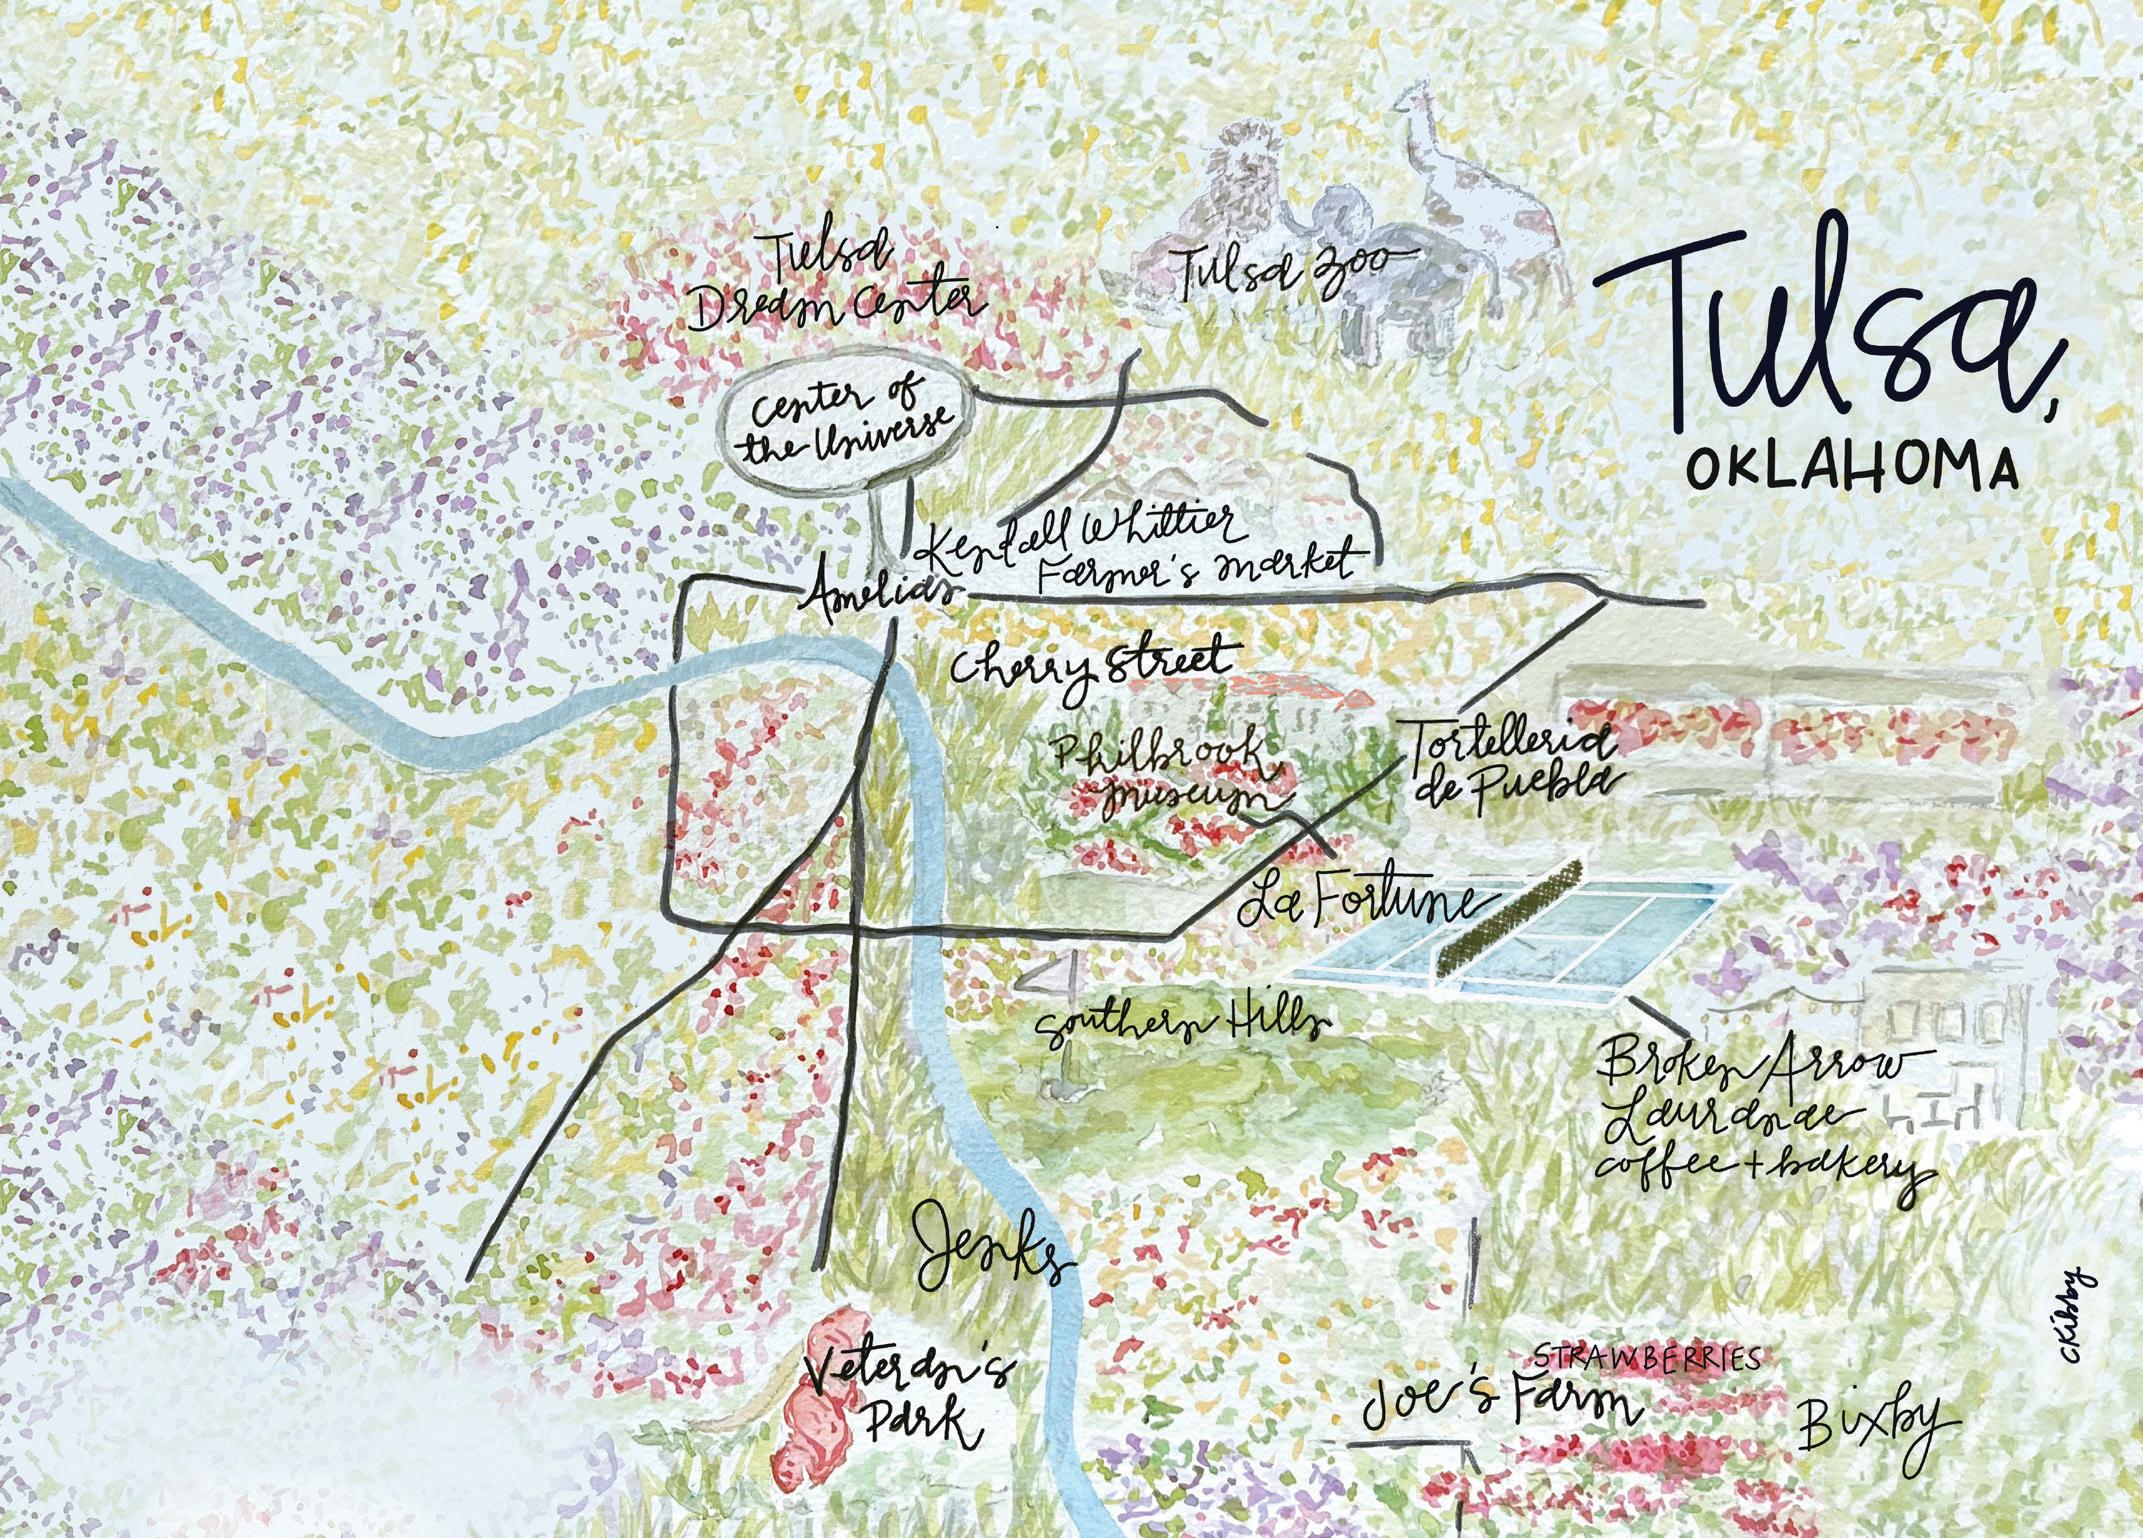 Tulsa
Dream Center
Tulsa Zoo
Tulsa,
OKLAHOMA
Center of
the Universe
Kendall Whittier
Farmer's Market
Amelias
Cherry Street
Philbrook
museum
Tortelleria
de Puebla
La Fortune
Southern Hills
Broken Arrow
Laurannae
coffee + bakery
Jenks
Veteran's
Park
STRAWBERRIES
Joe's Farm
Bixby
CKibby